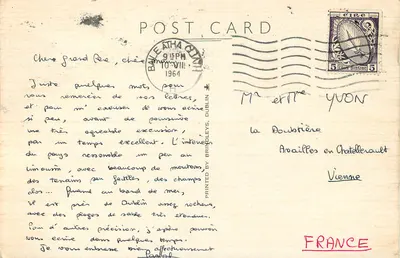 POST CARD
BAILE ATHA CLIATH
9 PM
10 VIII
1964
EIRE
5
Cher grand Père, chère
Juste quelques mots pour
vous remercier de vos lettres,
et pour m'excuser de vous écrire
si peu, avant de poursuivre
une très agréable excursion,
par un temps excellent. L'intérieur
du pays ressemble un peu au
Limousin, avec beaucoup de moutons,
des terrains peu fertiles, des champs
clos... Quand au bord de mer,
il est près de Dublin assez rocheux,
avec des plages de sable très étendues.
d'autres précisions, j'espère pouvoir
vous écrire dans quelques temps.
Je vous embrasse affectueusement
PRINTED BY BRINDLEYS, DUBLIN
Mr et Mme YVON
La Doubtière
Availles en Chatellerault
Vienne
FRANCE